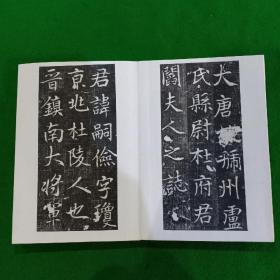 大唐虢州盧
氏縣尉杜府君
閻夫人之誌
君諱嗣儉字瓊
京兆杜陵人也
晉鎮南大將軍